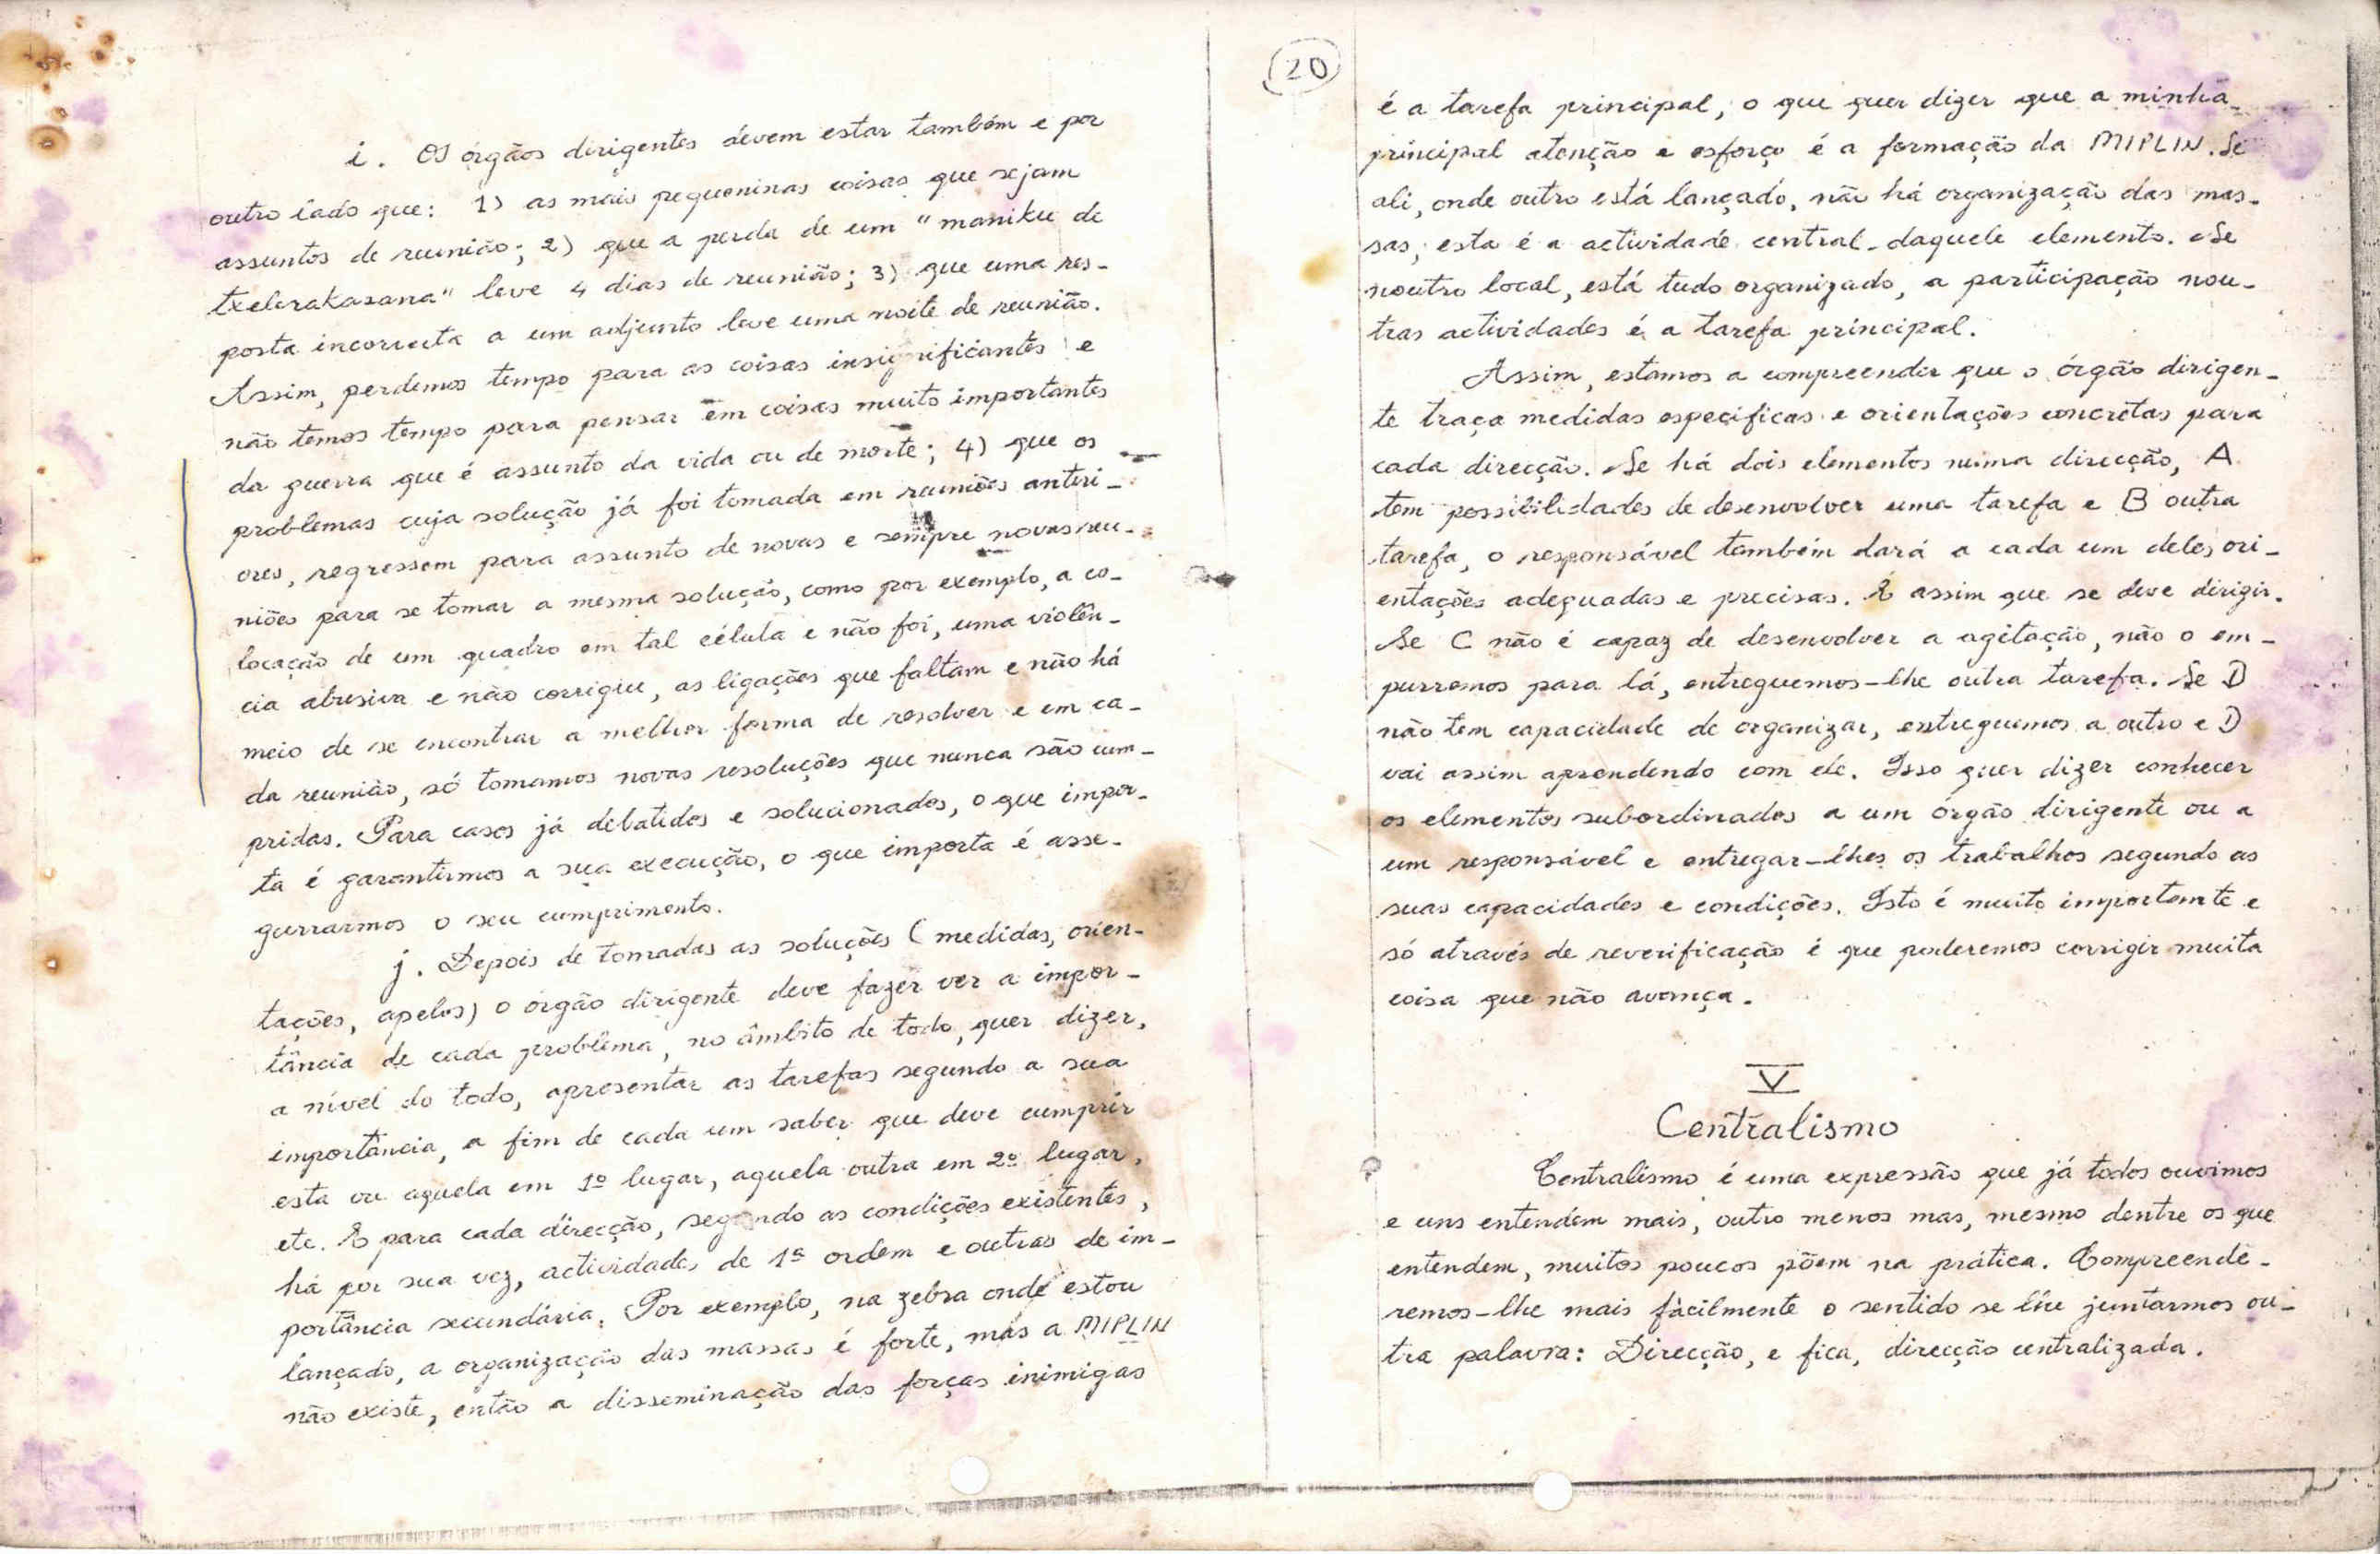 i. Os órgãos dirigentes devem estar também e por
outro lado que: 1) as mais pequeninas coisas que sejam
assuntos de reunião; 2) que a perda de um "maniku de
txelerakasana" leve 4 dias de reunião; 3) que uma res-
posta incorrecta a um adjunto leve uma noite de reunião.
Assim, perdemos tempo para as coisas insignificantes e
não temos tempo para pensar em coisas muito importantes
da guerra que é assunto da vida ou de morte; 4) que os
problemas cuja solução já foi tomada em reuniões anteri-
ores, regressem para assunto de novas e sempre novas reu-
niões para se tomar a mesma solução, como por exemplo, a co-
locação de um quadro em tal célula e não foi, uma violên-
cia abusiva e não corrigiu, as ligações que faltam e não há
meio de se encontrar a melhor forma de resolver e em ca-
da reunião, só tomamos novas resoluções que nunca são cum-
pridas. Para casos já debatidos e solucionados, o que impor-
ta é garantirmos a sua execução, o que importa é asse-
gurrarmos o seu cumprimento.
j. Depois de tomadas as soluções (medidas, orien-
tações, apelos) o órgão dirigente deve fazer ver a impor-
tância de cada problema, no âmbito de todo, quer dizer,
a nível do todo, apresentar as tarefas segundo a sua
importância, a fim de cada um saber que deve cumprir
esta ou aquela em 1º lugar, aquela outra em 2º lugar,
etc. E para cada direcção, segundo as condições existentes,
há por sua vez, actividades de 1ª ordem e outras de im-
portância secundária. Por exemplo, na zebra onde estou
lançado, a organização das massas é forte, mas a MIPLIN
não existe, então a disseminação das forças inimigas
20
é a tarefa principal, o que quer dizer que a minha
principal atenção e esforço é a formação da MIPLIN. Se
ali, onde outro está lançado, não há organização das mas-
sas, esta é a actividade central daquele elemento. Se
noutro local, está tudo organizado, a participação nou-
tras actividades é a tarefa principal.
Assim, estamos a compreender que o órgão dirigen-
te traça medidas especificas e orientações concretas para
cada direcção. Se há dois elementos numa direcção, A
tem possibilidades de desenvolver uma tarefa e B outra
tarefa, o responsável também dará a cada um deles ori-
entações adequadas e precisas. É assim que se deve dirigir.
Se C não é capaz de desenvolver a agitação, não o em-
purremos para lá, entreguemos-lhe outra tarefa. Se D
não tem capacidade de organizar, entreguemos a outro e D
vai assim aprendendo com ele. Isso quer dizer conhecer
os elementos subordinados a um órgão dirigente ou a
um responsável e entregar-lhes os trabalhos segundo as
suas capacidades e condições. Isto é muito importante e
só através de reverificação é que poderemos corrigir muita
coisa que não avança.
V
Centralismo
Centralismo é uma expressão que já todos ouvimos
e uns entendem mais, outro menos mas, mesmo dentre os que
entendem, muitos poucos põem na prática. Compreende-
remos-lhe mais fàcilmente o sentido se lhe juntarmos ou-
tra palavra: Direcção, e fica, direcção centralizada.